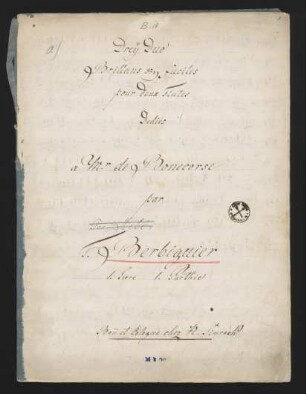 a)
Dreÿ Duo
Brillans et faciles
pour deux Flutes
Dediés
a Mr de Bonecorse
par
T. Berbiguier
1. Livre 1. Parthie
chez N. Simrock